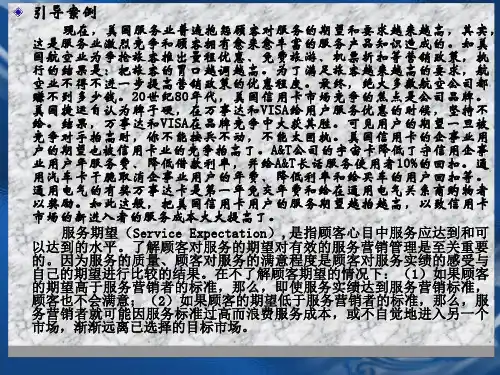 引导案例
现在，美国服务业普遍抱怨顾客对服务的期望和要求越来越高，其实，
这是服务业激烈竞争和顾客拥有愈来愈丰富的服务产品知识造成的。如美
国航空业为争抢旅客推出量程优惠、免费旅游、机票折扣等营销政策，执
行的结果是：把旅客的胃口越调越高。为了满足旅客越来越高的要求，航
空业不得不进一步提高营销政策的优惠程度。最终，绝大多数航空公司都
赚不到多少钱。20世纪80年代，美国信用卡市场竞争的焦点是公司品牌。
美国捷运自认为牌子硬，在万事达和VISA给用户服务优惠的时候，坚持不
给。结果，万事达和VISA在品牌竞争中大获其胜。可见用户的期望一旦被
竞争对手抬高时，你不能按兵不动，不能太固执。美国信用卡的企事业用
户的期望也被信用卡业的竞争抬高了。A&T公司的宇宙卡降低了守信用企事
业用户年服务费、降低借款利率，并给A&T长话服务使用者10%的回扣。通
用汽车卡干脆取消企事业用户的年费、降低利率和给买车的用户回扣等。
通用电气的有奖万事达卡是第一年免交年费和给在通用电气关系商购物者
以奖励。如此这般，把美国信用卡用户的服务期望越抬越高，以致信用卡
市场的新进入者的服务成本大大提高了。
服务期望（Service Expectation），是指顾客心目中服务应达到和可
以达到的水平。了解顾客对服务的期望对有效的服务营销管理是至关重要
的。因为服务的质量、顾客对服务的满意程度是顾客对服务实绩的感受与
自己的期望进行比较的结果。在不了解顾客期望的情况下：（1）如果顾客
的期望高于服务营销者的标准，那么，即使服务实绩达到服务营销标准，
顾客也不会满意；（2）如果顾客的期望低于服务营销者的标准，那么，服
务营销者就可能因服务标准过高而浪费服务成本，或不自觉地进入另一个
市场，渐渐远离已选择的目标市场。